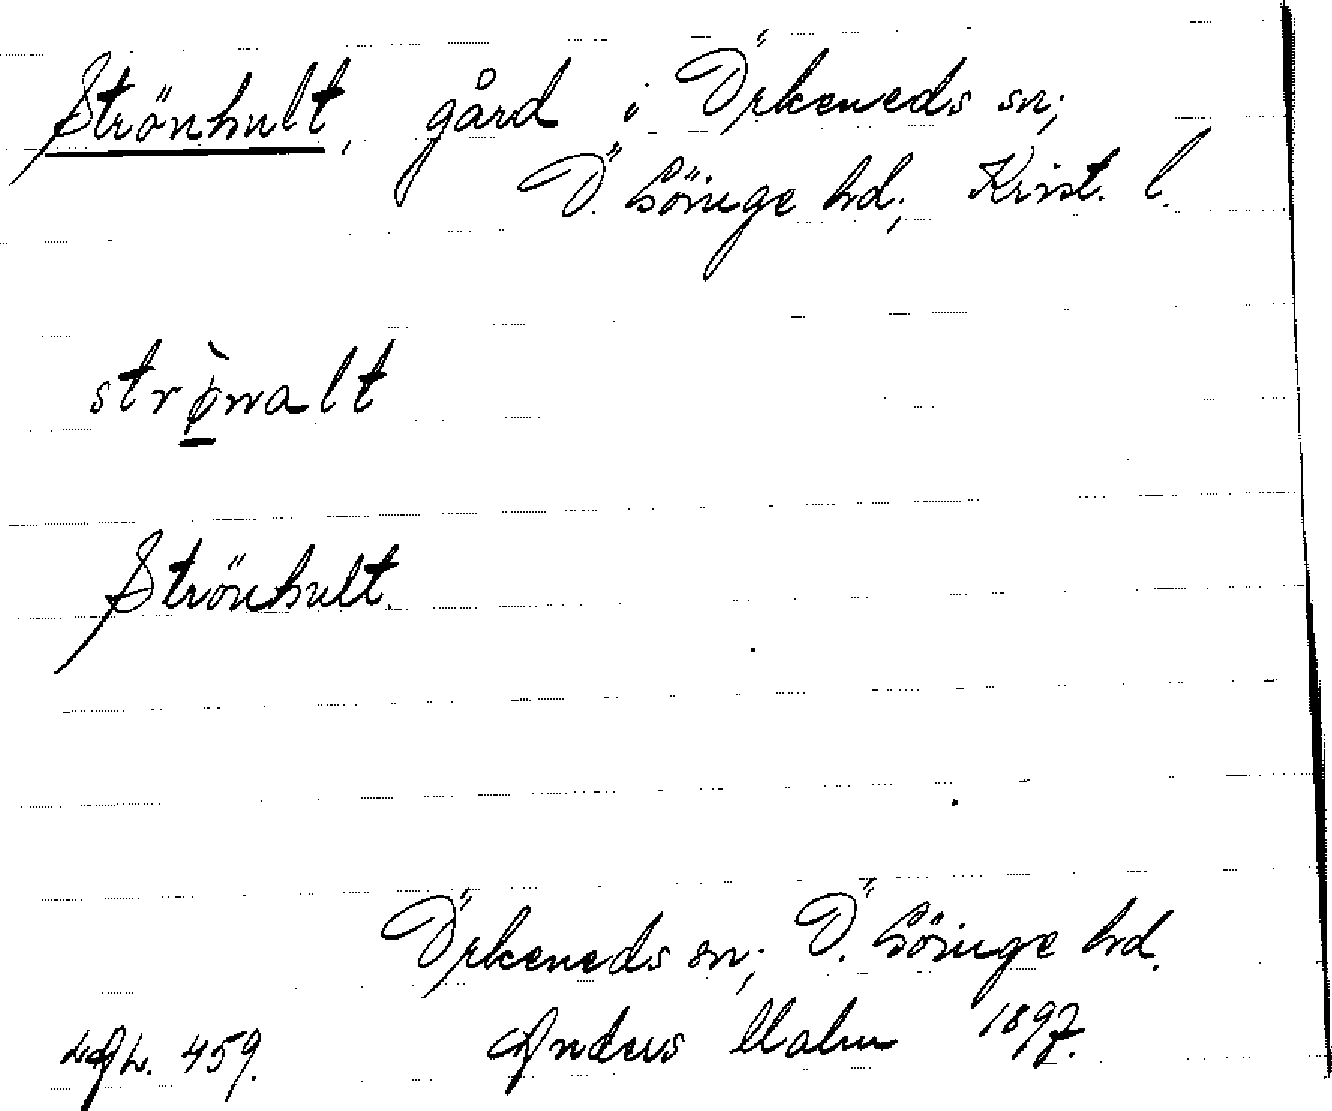 Strönhult, gård i Örkeneds sn;
Ö. Göinge hd; Krist. l.
strø̀nalt
Strönhult.
Örkeneds sn; Ö. Göinge hd.
459. Anders Malm 1897.